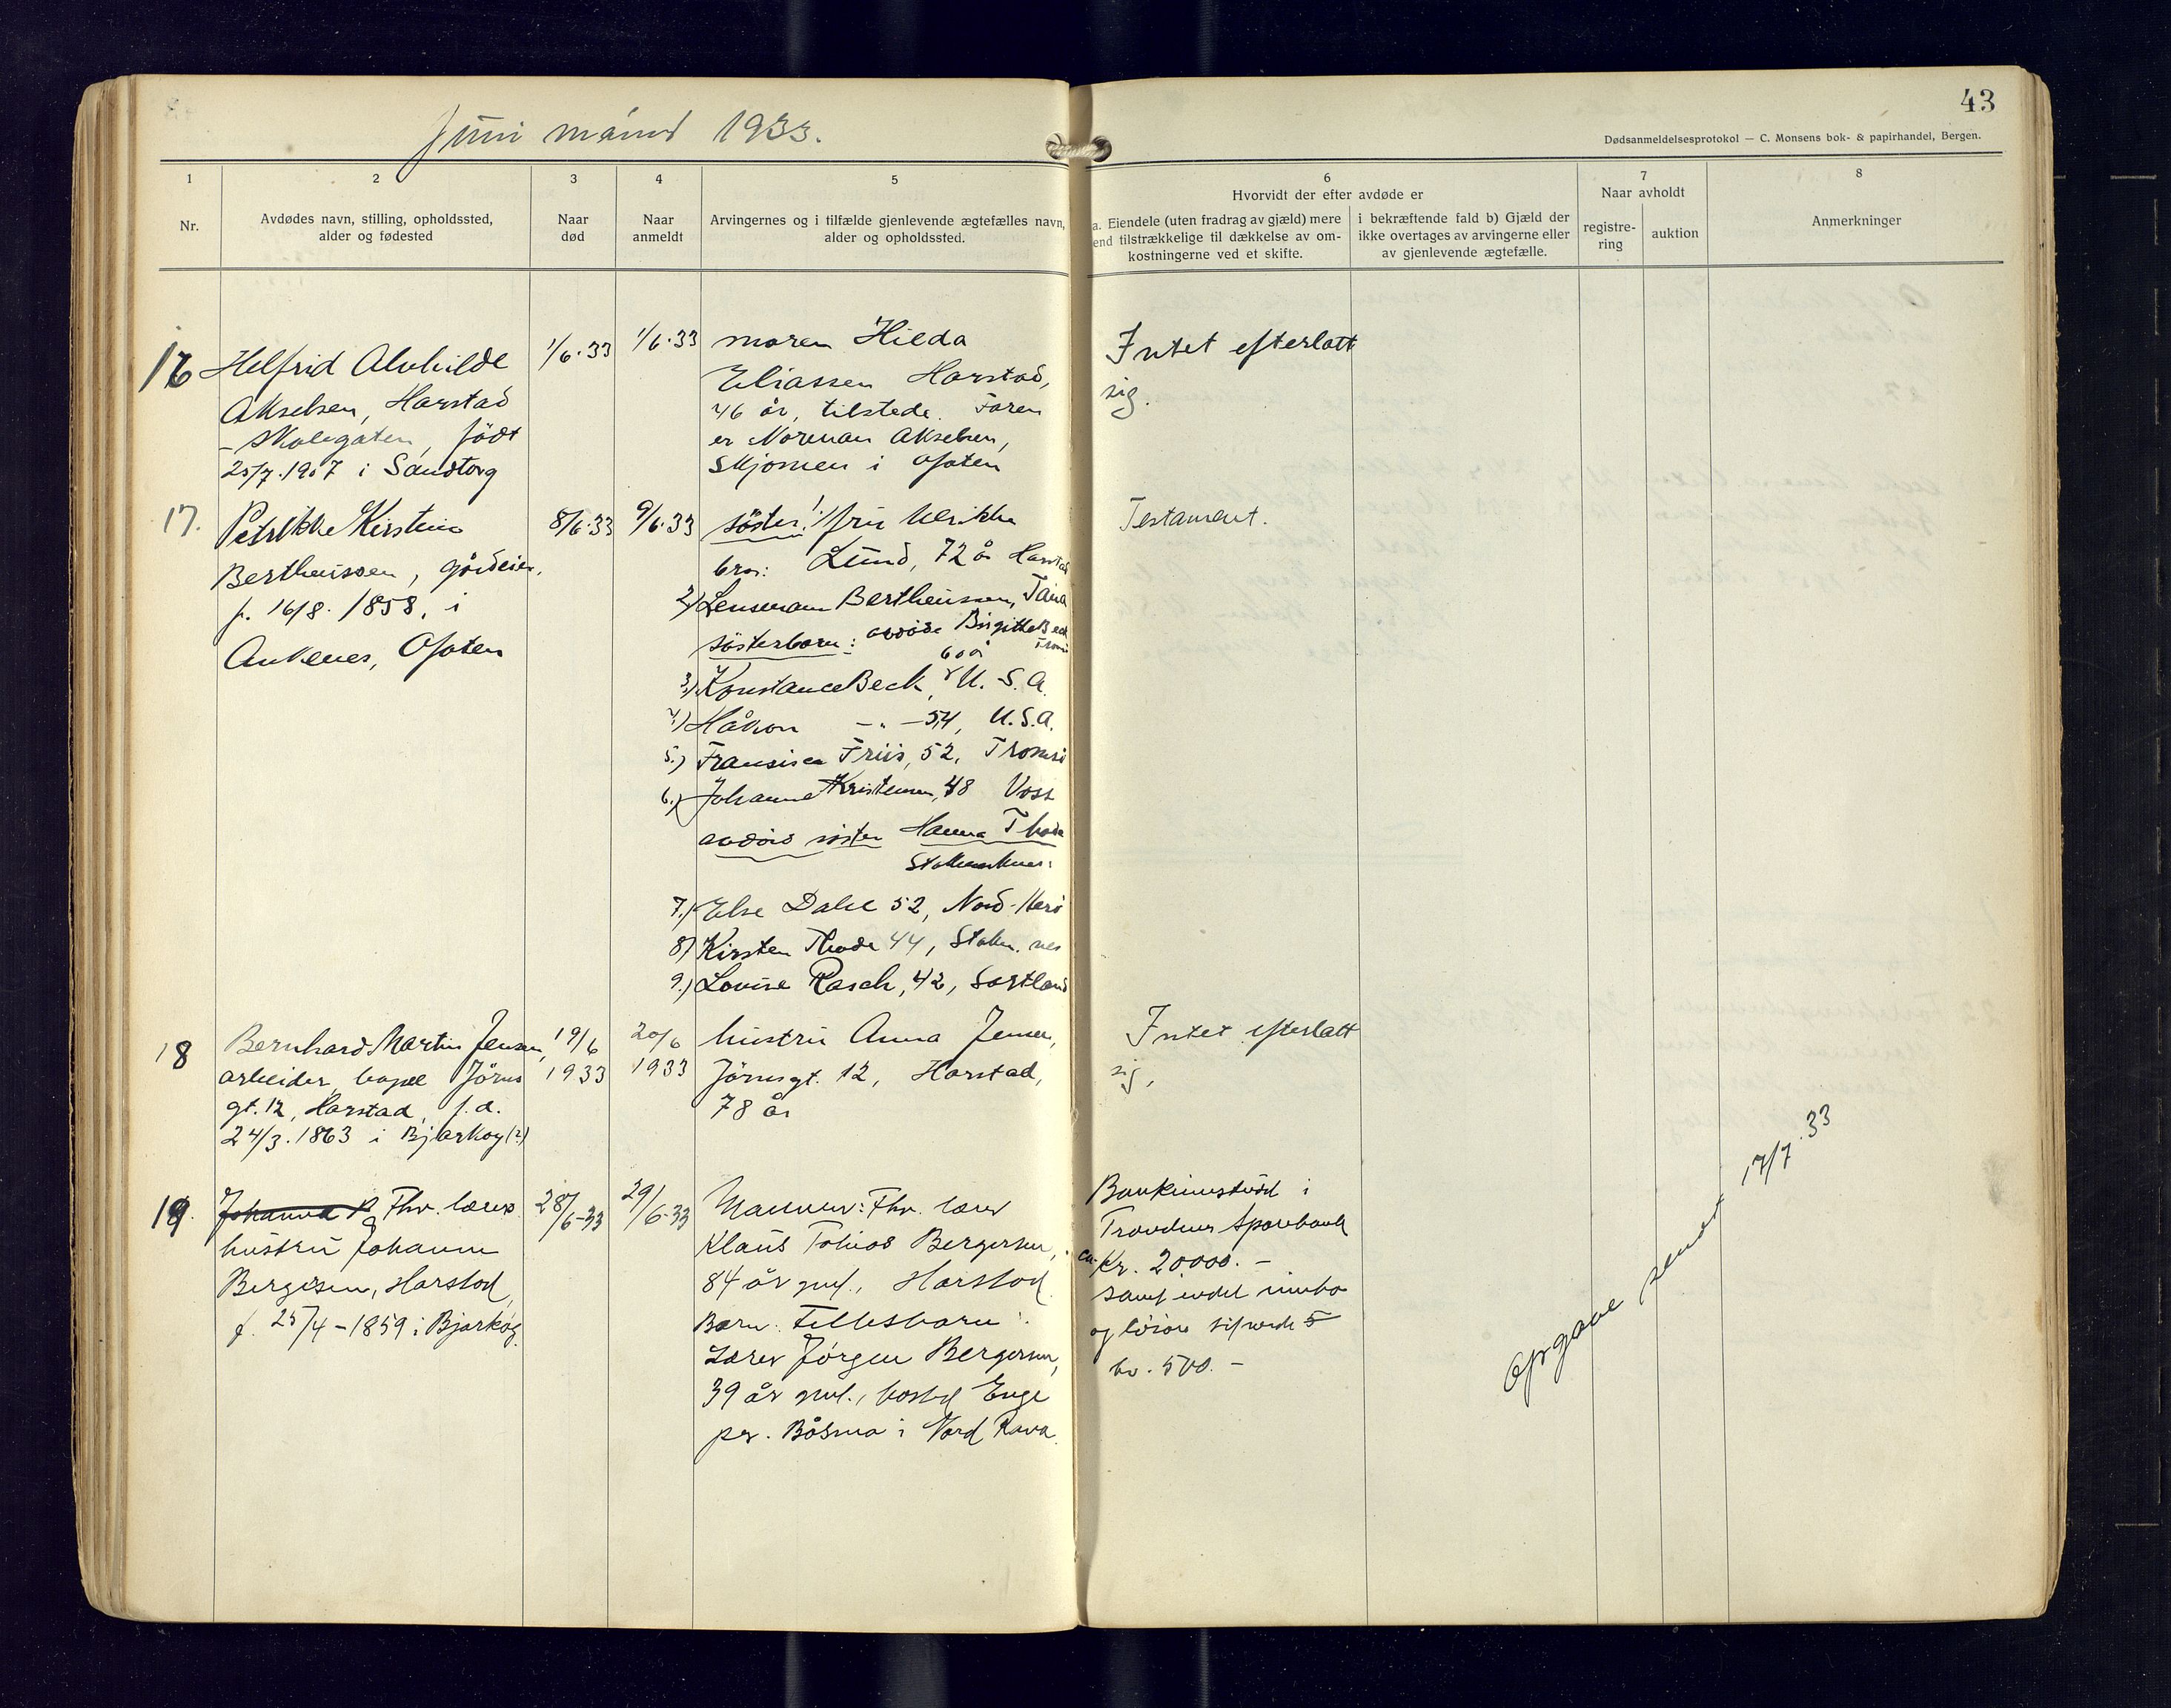 43
Juni månd 1933.
Dødsanmeldelsesprotokol — C. Monsens bok- & papirhandel, Bergen.
1
Nr.
2
Avdødes navn, stilling, opholdssted,
alder og fødested
3
Naar
død
4
Naar
anmeldt
5
Arvingernes og i tilfælde gjenlevende ægtefælles navn,
alder og opholdssted.
6
Hvorvidt der efter avdøde er
a. Eiendele (uten fradrag av gjæld) mere
end tilstrækkelige til dækkelse av om-
kostningerne ved et skifte.
i bekræftende fald b) Gjæld der
ikke overtages av arvingerne eller
av gjenlevende ægtefælle.
7
Naar avholdt
registre-
ring
auktion
8
Anmerkninger
16
Helfrid Alvhilde
Akselsen, Harstad
- Skolegaten, født
25/7.1907 i Sandtorg
1/6.33
1/6.33
moren Hilda
Eliassen Harstad,
46 år, tilstede. Faren
er Norman Akselsen,
Skjomen i Ofoten
Intet efterlatt
sig.
17.
Petrikke Kirstine
Bertheussen, gårdeier,
f. 16/8. 1858, i
Ankenes, Ofoten
8/6.33
9/6.33
søster: 1/ fru Ulrikke
Lund, 72 år Harstad
bror:
2) Lensmann Bertheussen, Tana
søsterbarn: avdøde Birgitte Beck
60 år
3) Konstance Beck, U.S.A.
4) Håkon -"- 54, U.S.A.
5.) Fransisca Friis, 52, Tromsø
6.) Johanne Kristensen, 48 Voss
avdød søster Hanna Thode
Stokmarknes:
7.) Else Dahl 52, Nord-Herø
8) Kirsten Thode 44, Stokm. nes
9.) Lovise Rasch, 42, Sortland
Testament.
18
Bernhard Martin Jensen,
arbeider, bopæl Jörns
gt. 12, Harstad, f. d.
24/3.1863 i Bjarkøy (?)
19/6
1933
20/6
1933
hustru Anna Jensen,
Jörnsgt. 12, Harstad,
78 år
Intet efterlatt
sig,
19.
Johanna B Fhv. lærer
hustru Johanna
Bergersen, Harstad,
f. 25/4 - 1859 i Bjarkøy.
28/6-33
29/6.33
Mannen: Fhv. lærer
Klaus Tobias Bergersen,
84 år gml., Harstad.
Barn: Fellesbarn:
Lærer Jørgen Bergersen,
39 år gml., bosted Enge
pr. Båsmo i Nord Rana.
Bankinnskudd i
Trondenes Sparebank
ca. kr. 20000.-
samt endel innbo
og løsøre
kr. 500.-
Opgave sendt 17/7.33